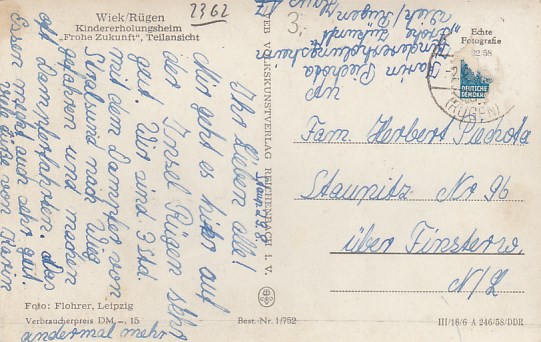 Wiek/Rügen
Kindererholungsheim
„Frohe Zukunft", Teilansicht
2362
3,-
Echte
Fotografie
22/58
Ihr lieben alle!
Mir geht es hier auf
der Insel Rügen sehr
gut. Wir sind 3 Std.
mit dem Dampfer von
Stralsund nach Wiek
gefahren und machen
oft Dampferfahrten. Das
Essen ist auch sehr gut.
Viele Grüße von Karin
andermal mehr
Karin Piechota
Kindererholungsheim
„Frohe Zukunft"
Wiek/Rügen
Haus
VEB VOLKSKUNSTVERLAG REICHENBACH i. V.
DEUTSCHE
DEMOKR
(RÜGEN)
Fam Herbert Piechota
Staupitz Nr 96
über Finsterw.
N/L
Foto: Flohrer, Leipzig
Verbraucherpreis DM –, 15
Best.-Nr. 1/752
III/16/6 A 246/58/DDR